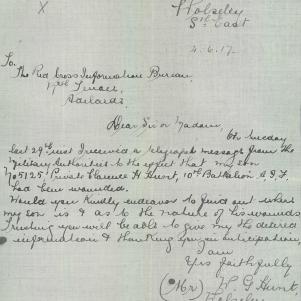 X
Wolseley
Sth East
4.6.17.
To,
The Red Cross Information Bureau,
Adelaide
Dear Sir or Madam,
On Tuesday
last 29th inst I received a telegraph message from the
Military Authorities to the effect that my son
No 5125, Private Clarence H Hunt, 10th Battalion A.I.F.
had been wounded.
Would you kindly endeavor to find out where
my son is & as to the nature of his wounds
Trusting you will be able to give my the desired
information & thanking you in anticipation,
I am
Yrs faithfully
(Mr) W. G. Hunt,
Wolseley